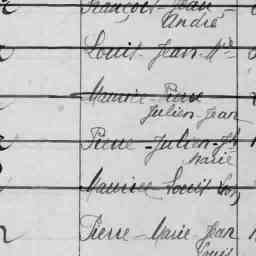 François Jean
André
Louis Jean Mie
Maurice Pierre
Julien Jean
Pierre - Julien - Jh
Marie
Maurice Louis
Pierre - Marie Jean
Louis